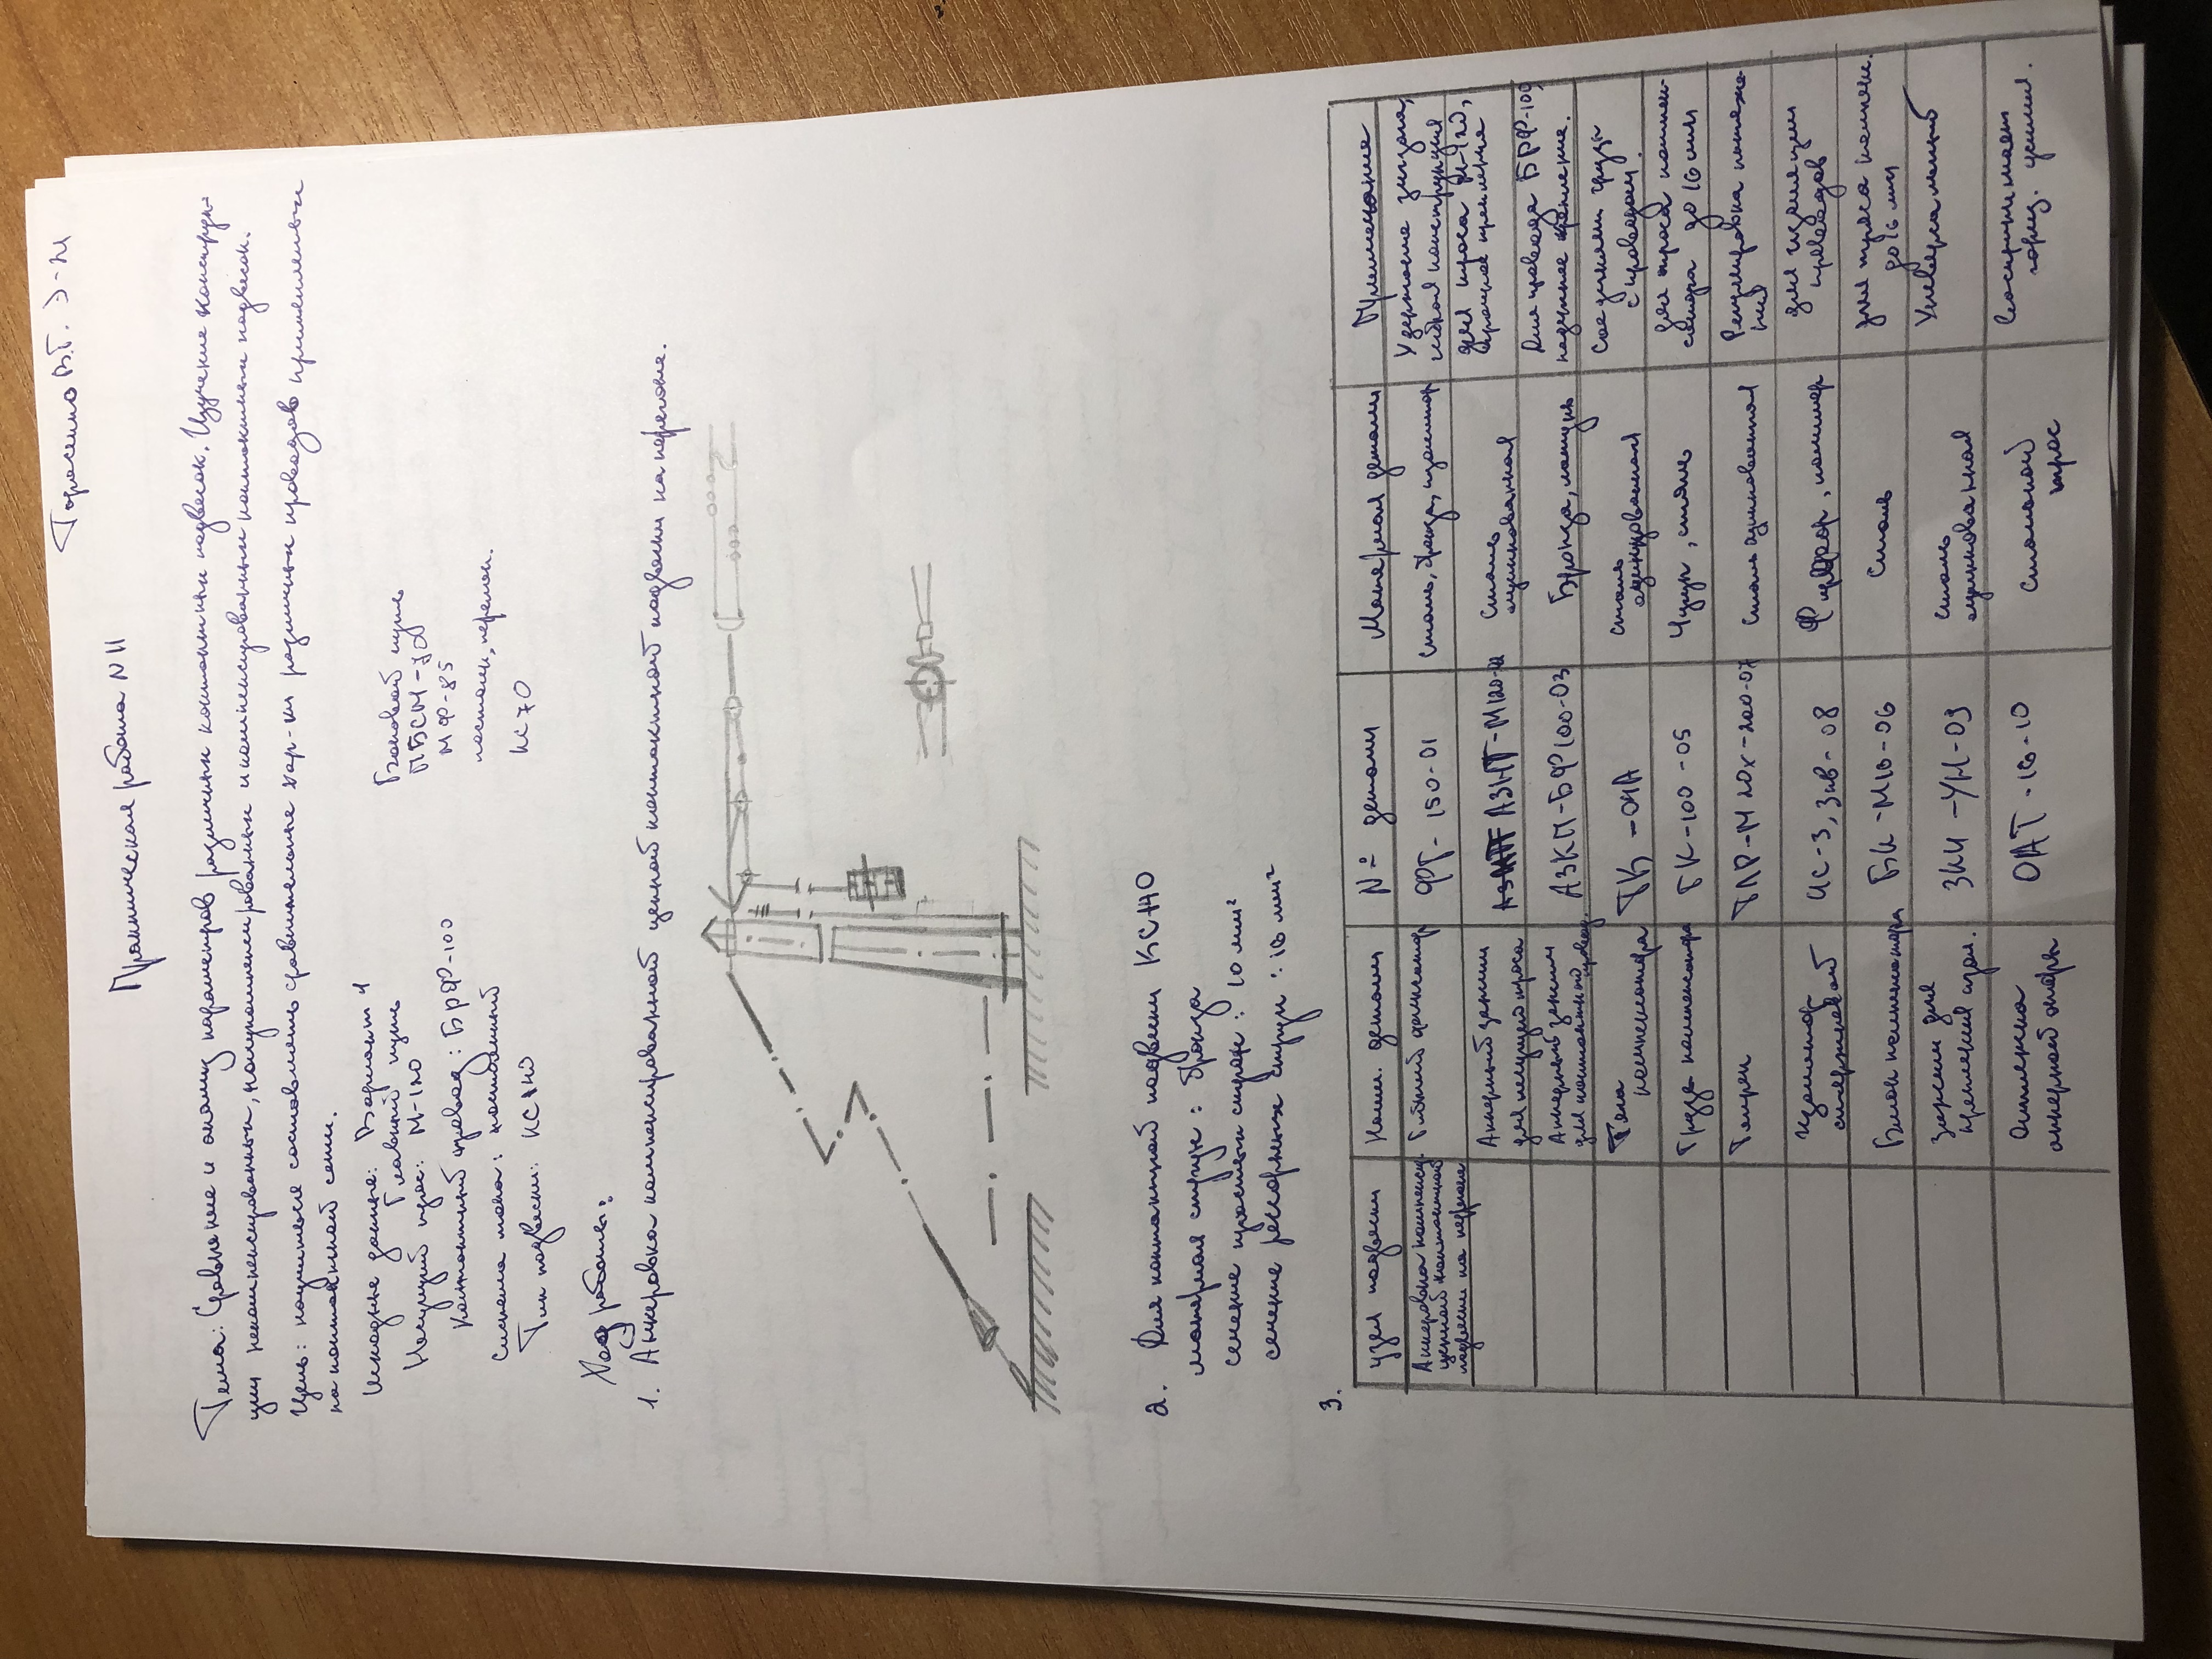 Тарасенко В.Г. Э-21
Практическая работа N 11
Тема: Сравнение и анализ параметров различных контактных подвесок. Изучение конструк-
ции некомпенсированных, полукомпенсированных и компенсированных контактных подвесок.
Цель: научиться составлять сравнительные хар-ки различных проводов применяемых
на контактной сети.
Исходные данные: Вариант 4
Главный путь
Несущий трос: М-120
Контактный провод: БРФ-100
Система тока:
Тип подвески: КС140
Боковой путь
ПБСМ-70
МФ-85
постоян, перемен.
КС70
Ход работы:
1. Анкеровка компенсированной цепной контактной подвески на перегоне.
2. Для контактной подвески КС140
материал струн: бронза
сечение простых струн: 10 мм²
сечение рессорных струн: 16 мм²
3.
Узел подвески | Наим. детали | № детали | Материал детали | Примечание
Анкеровка компенси. цепной контактной подвески на перегоне | Гибкий | ФТ-150-01 | сталь, бронза, | Удержание
Анкерный зажим для несущего троса | АЗНТ-М120-02 | Сталь оцинкованная | для троса М-120, прочное крепление
Анкерный зажим для контактного провод. | АЗКП-БФ100-03 | Бронза, латунь | Для провода БРФ-100, надежное крепление.
Тяга компенсатора | ТК-04А | сталь оцинкованная | Соединяет груз с проводом
Груз компенсатора | ГК-100-05 | Чугун, сталь | для троса компен-сатора до 16 мм
Талреп | ТЛР-М20х-200-07 | Сталь оцинкованная | Регулировка натяже-ния
Изолятор стержневой | ИС-3,3кв-08 | Фарфор, полимер | для изоляции проводов
Блок компенсатора | БК-М16-06 | Сталь | для троса компен. до 16 мм
Зажим для крепления изол. | ЗКИ-УМ-09 | сталь оцинкованная | Универсальный
Оттяжка анкерной опоры | ОАТ-16-10 | Стальной трос | Воспринимает гориз. усилия.